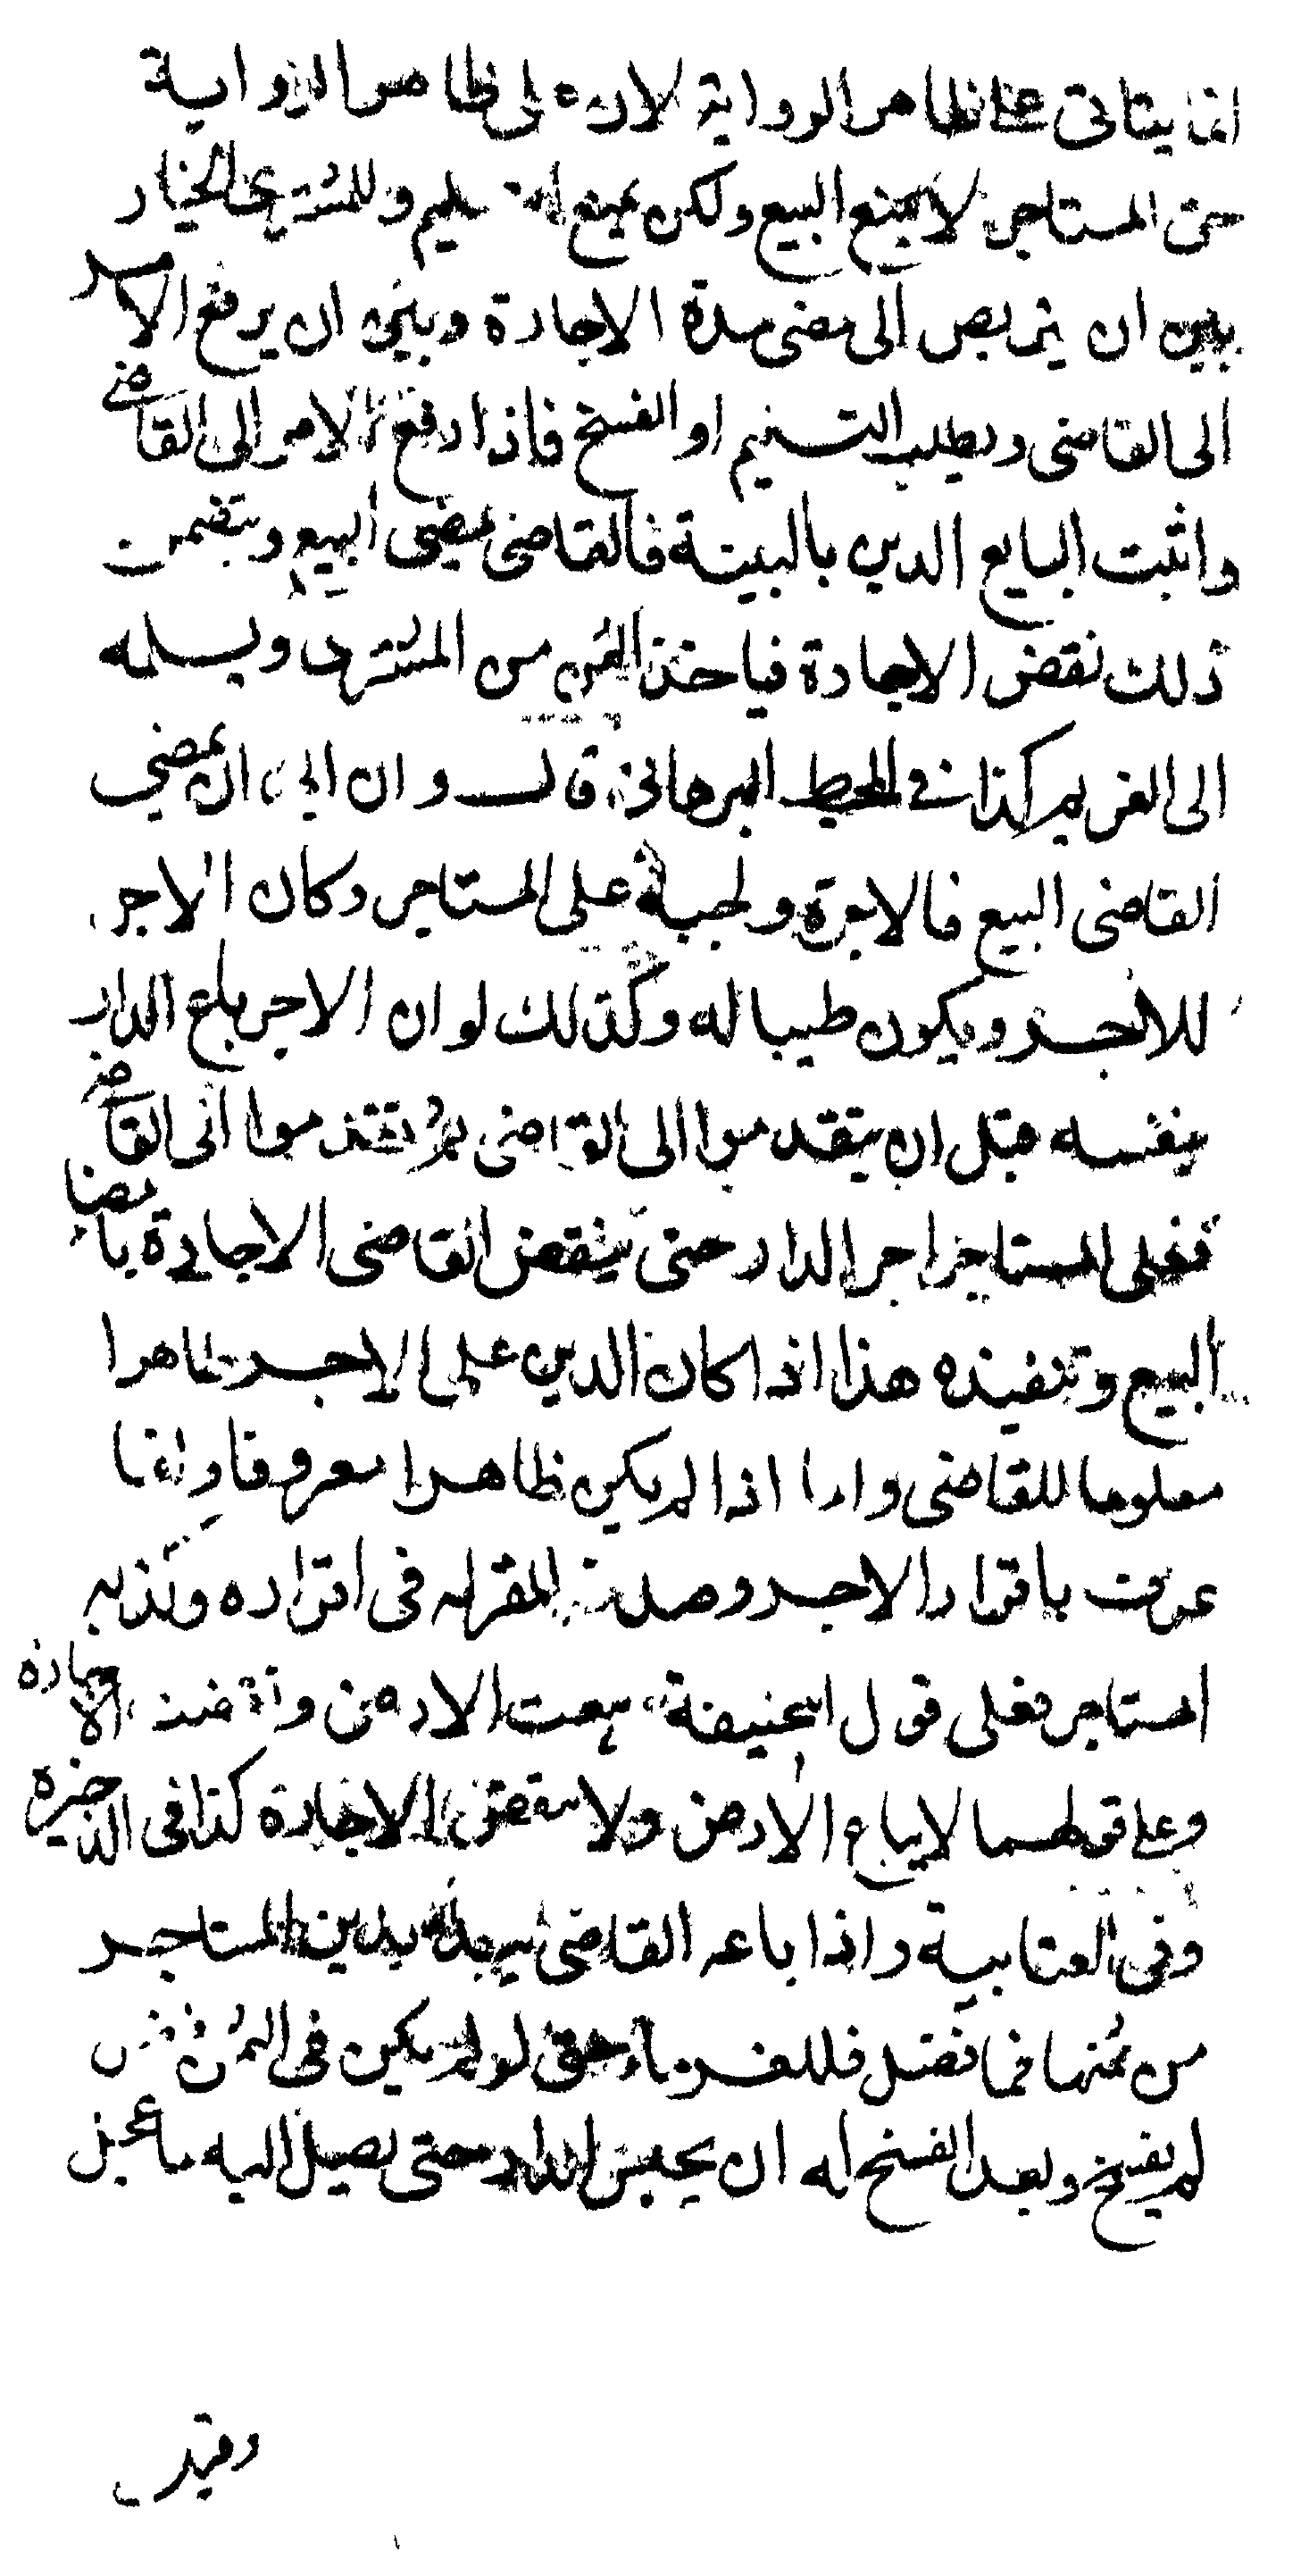 انما يتاتى على ظاهر الرواية لان على ظاهر الرواية
حق المستاجر لا يمنع البيع ولكن يمنع التسليم وللمشترى الخيار
بين ان يتربص الى مضى مدة الاجارة وبين ان يرفع الامر
الى القاضى ويطلب التسليم او الفسخ فاذا رفع الامر الى القاضى
واثبت البايع الدين بالبينة فالقاضى يمضى البيع ويتضمن
ذلك نقض الاجارة فياخذ الثمن من المشترى ويسلمه
الى الغريم كذا فى المحيط البرهانى قال وان الى ان يمضي
القاضى البيع فالاجرة واجبة على المستاجر وكان الاجر
للاجر ويكون طيبا له وكذلك لو ان الاجر باع الدار
بنفسه قبل ان يتقدموا الى القاضى ثم تقدموا الى القاضى
فعلى المستاجر اجر الدار حتى ينقض القاضى الاجارة بامضا
البيع وتنفيذه هذا اذا كان الدين على الاجر ظاهرا
معلوما للقاضى واما اذا لم يكن ظاهرا معروفا وانما
عرف باقرار الاجر وصدقه المقر له فى اقراره وكذبه
المستاجر فعلى قول ابيحنيفة يبعت الارض وتنقض الاجارة
وعلى قولهما لا يباع الارض ولا ينقض الاجارة كذا فى الذخيره
وفى العتابية واذا باعه القاضى يبدا بدين المستاجر
من ثمنها فما فضل فللغرماء حتى لو لم يكن فى الثمن فضل
لم يفسخ وبعد الفسخ له ان يحبس الدار حتى يصل اليه ما عجل
وقيد